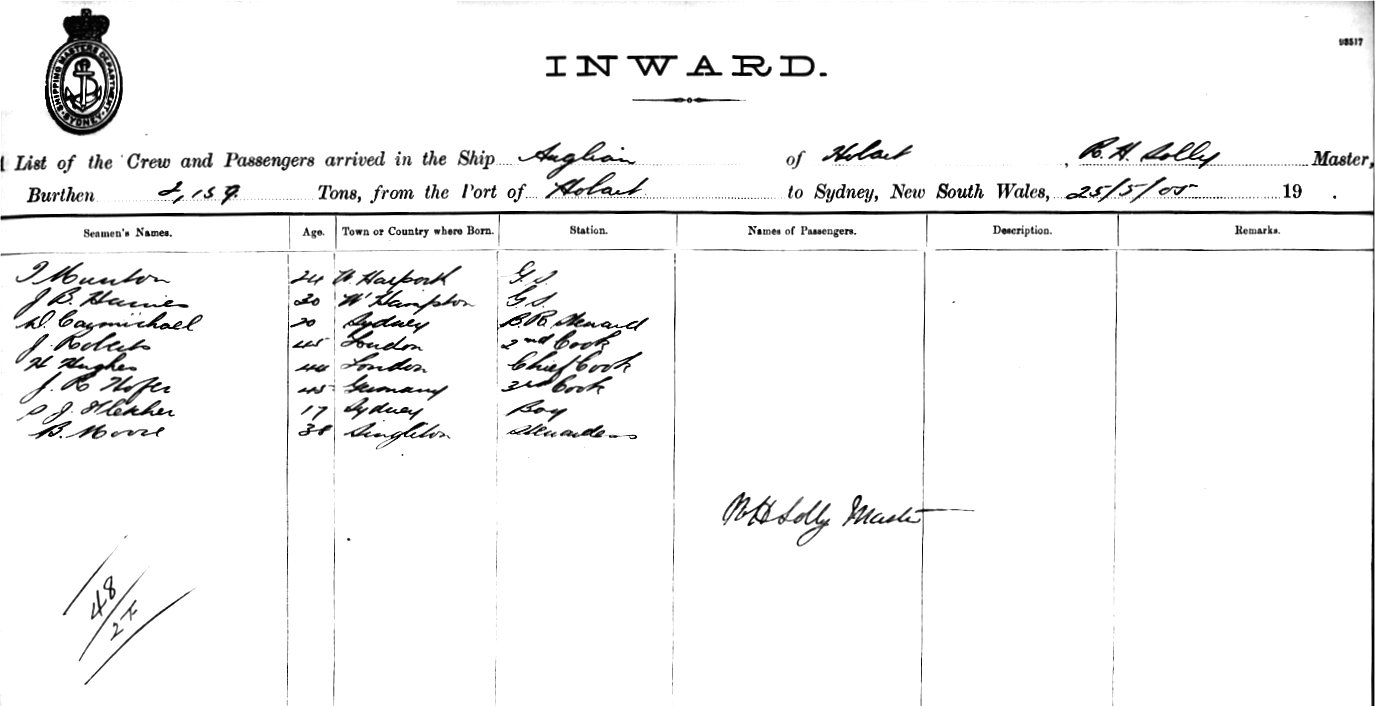 SHIPPING MASTERS DEPARTMENT SYDNEY
98517
INWARD.
List of the Crew and Passengers arrived in the Ship Anglian of Hobart, R. H. Solly Master,
Burthen 2,159 Tons, from the Port of Hobart to Sydney, New South Wales, 25/5/05 19 .
Seamen's Names. Age. Town or Country where Born. Station. Names of Passengers. Description. Remarks.
Munton 24 G.S.
J. B. Haines 20 W'Hampton G.S.
D. Carmichael 20 Sydney B.R. Steward
J. Roberts 45 London 2nd Cook
H Hughes 44 London Chief Cook
J. R Hofer 45 Germany 3rd Cook
S J. Fletcher 17 Sydney Boy
B. Moore 38 Singleton Stewardess
R H Solly Master
48